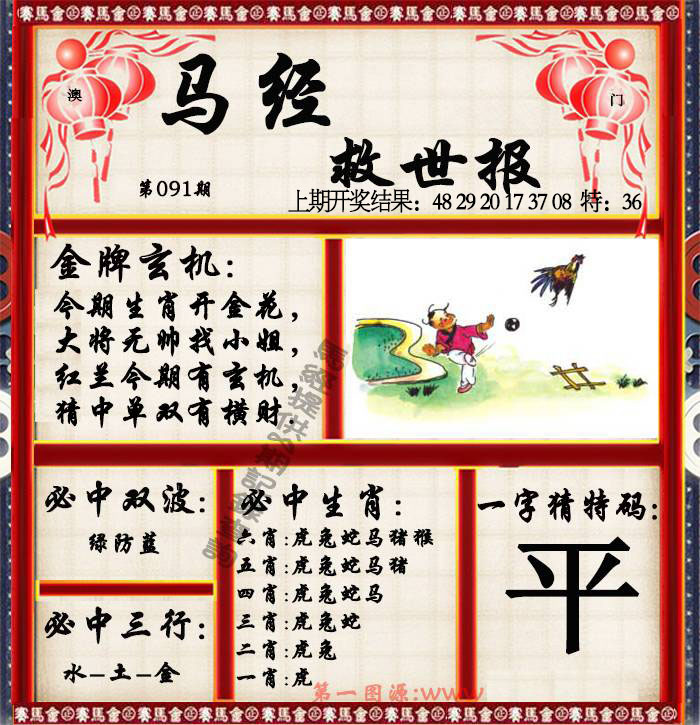 赛馬會正賽馬會正賽馬會正賽馬會正
澳
马经
门
救世报
第091期
上期开奖结果：48 29 20 17 37 08 特：36
金牌玄机：
今期生肖开金花，
大将无帅找小姐，
红兰今期有玄机，
猜中单双有横财.
必中双波：
绿防蓝
必中三行：
水–土–金
必中生肖：
六肖:虎兔蛇马猪猴
五肖:虎兔蛇马猪
四肖:虎兔蛇马
三肖:虎兔蛇
二肖:虎兔
一肖:虎
一字猜特码：
平
第一图源:www